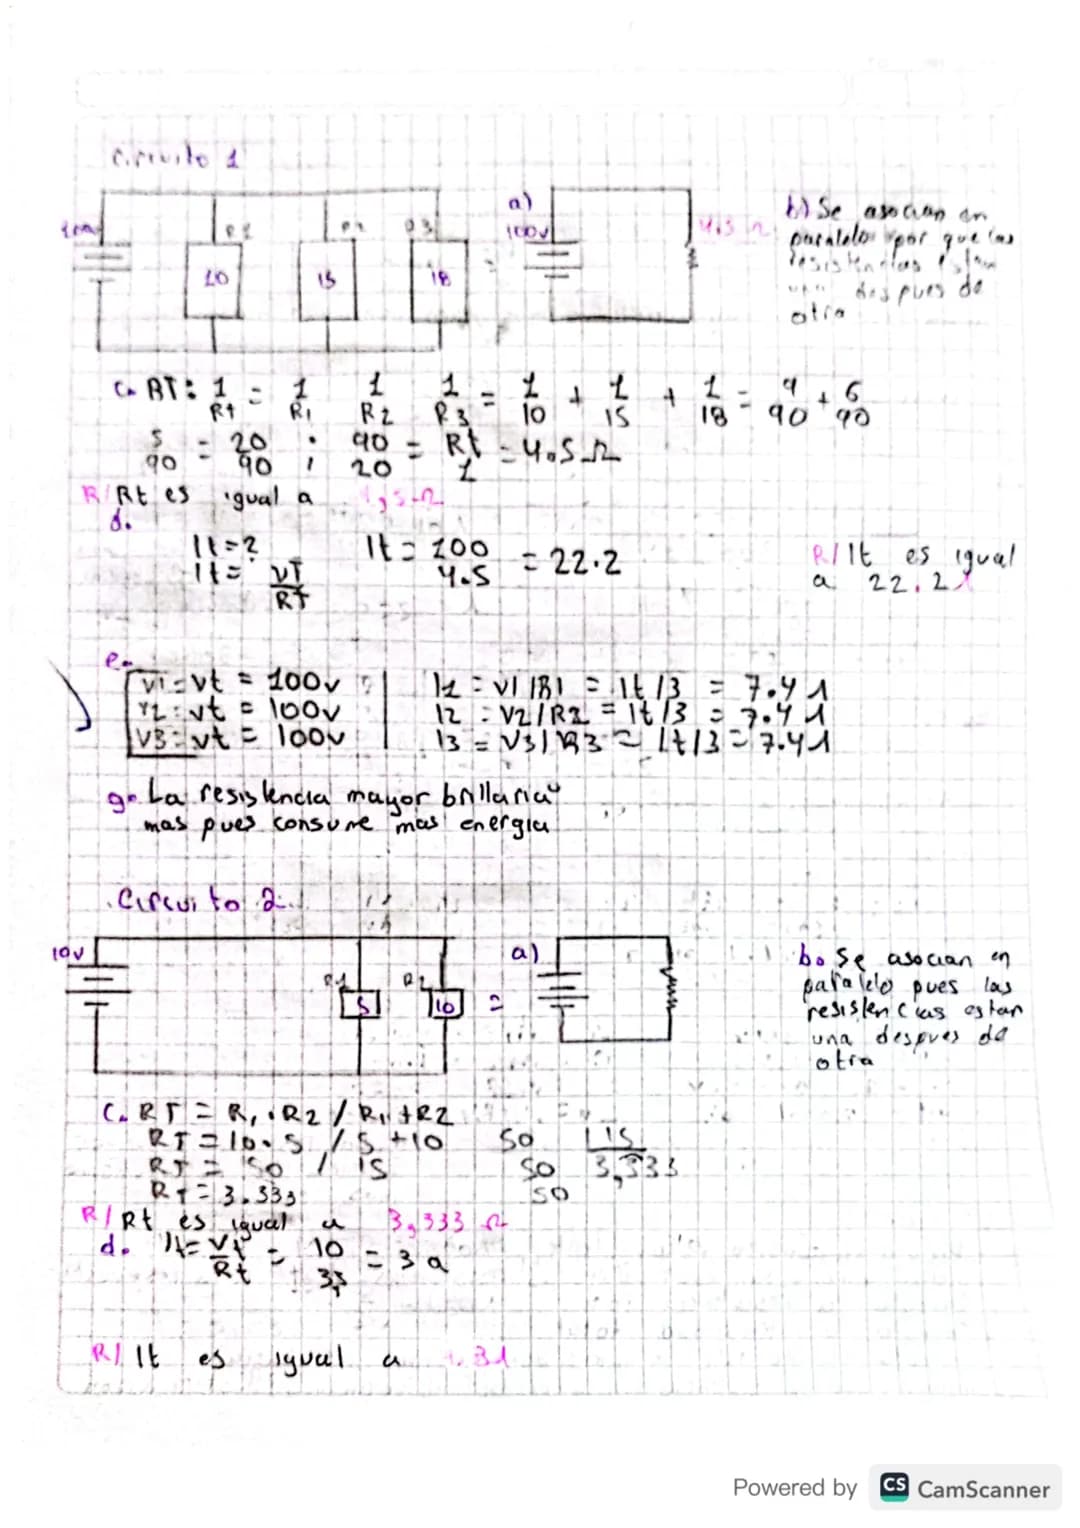 Circuito 1
a)
100v
b) Se asocian en
paralelo por que las
resistencias estan
despues de
otra
R1
10
15
R3
18
4.5 Ω
c. RT: 1/Rt = 1/R1 1/R2 1/R3 = 1/10 + 1/15 + 1/18 = 9/90 + 6/90
5/90 = 20/90 ; 90/20 = Rt/1 = 4.5 Ω
R/ Rt es igual a 4,5 Ω
d.
It = ?
It = VT/RT
It = 100/4.5 = 22.2
R/ It es igual
a 22.2
e.
V1 = vt = 100v
V2 = vt = 100v
V3 = vt = 100v
I1 = V1/R1 = It/3 = 7.4 A
I2 = V2/R2 = It/3 = 7.4 A
I3 = V3/R3 = It/3 = 7.4 A
g. La resistencia mayor brillaria
mas pues consume mas energia
Circuito 2.
10v
R1
5
R2
10
=
a)
b. Se asocian en
paralelo pues las
resistencias estan
una despues de
otra
C. RT = R1 · R2 / R1 + R2
RT = 10 · 5 / 5 + 10
RT = 50 / 15
RT = 3.333
50 15
50 3,333
50
R/ Rt es igual a 3,333 Ω
d. It = Vt/Rt = 10/3,3 = 3 a
R/ It es igual a
Powered by CS CamScanner